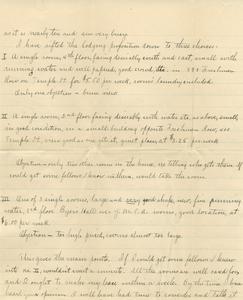 as it is nearly ten and am very busy.
I have sifted the lodging proposition down to three choices:
I A single room, 4th floor, facing directly south and east, small with
running water and well papered, good crowd, etc. in 383 Freshman
Row on Temple St. for $5.00 per week, room laundry included
Only one objection - 
II A single room, 2nd floor, facing directly east, small
in good condition, in a small building opposite Freshman Row,
Temple St. very good as, quiet place at $1.25 per week
Objection - only two other rooms in the house, no telling who gets them. If
could get some fellows I know in them, would take the room.
III One of 3 single rooms, large and good shape, new, fine running
water, 3rd floor Byers Hall, good location, at
$6.00 per week
Objection - too high priced, rooms almost too large
Now give the main points. If I could get some fellows I know
in II, wouldn't wait a minute. All the rooms are well
and I ought to make my within a week. By the time I
have your opinion I will have had time to consider and talk it